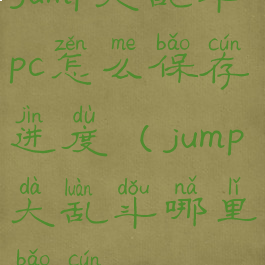 jump大乱斗
zěn me bǎo cún
pc怎么保存
jìn dù
进度(jump
dà luàn dǒu nǎ lǐ
大乱斗哪里
bǎo cún